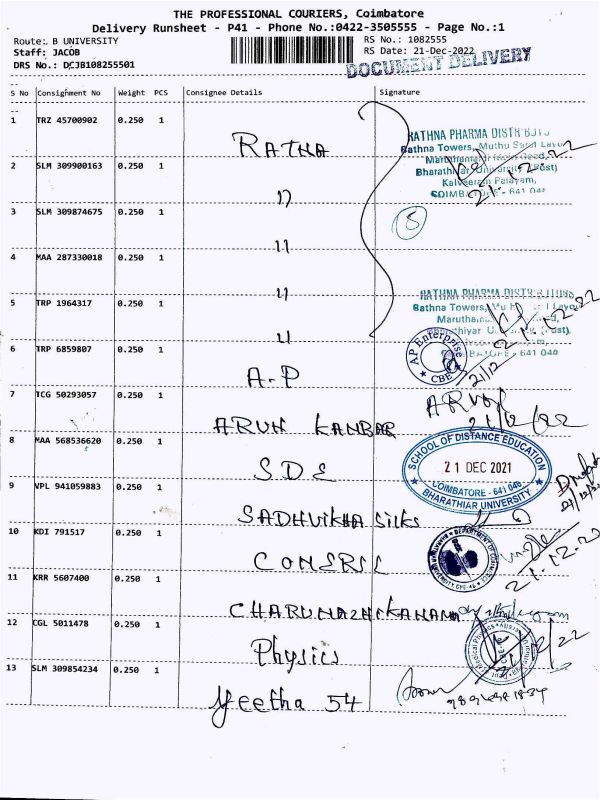 THE PROFESSIONAL COURIERS, Coimbatore
Delivery Runsheet - P41 - Phone No.:0422-3505555 - Page No.:1
Route: B UNIVERSITY
RS No.: 1082555
Staff: JACOB
RS Date: 21-Dec-2022
DRS No.: DCJB108255501
DOCUMENT DELIVERY
S No Consignment No Weight PCS Consignee Details Signature
1 TRZ 45700902 0.250 1 RATHA
RATHNA PHARMA
Rathna Towers, Muthu
Bharathiar University (Post)
Kalveeram Palayam,
COIMBATORE - 641 046
21.12.22
2 SLM 309900163 0.250 1 11
5
3 SLM 309874675 0.250 1 11
4 MAA 287330018 0.250 1 11
RATHNA PHARMA
Rathna Towers,
5 TRP 1964317 0.250 1 11
641 046
6 TRP 6859807 0.250 1 A.P
AP Enterprise
CBE
21/12
7 TCG 50293057 0.250 1 ARUN
ARUN
21/12/22
8 MAA 568536620 0.250 1 SDE
SCHOOL OF DISTANCE EDUCATION
21 DEC 2021
COIMBATORE - 641 046
BHARATHIAR UNIVERSITY
9 VPL 941059883 0.250 1 SADHVIKHA Silks
10 KDI 791517 0.250 1
DEPARTMENT OF
21.12.20
11 KRR 5607400 0.250 1
12 CGL 5011478 0.250 1 Physics
Medical Physics
13 SLM 309854234 0.250 1 Geetha 54